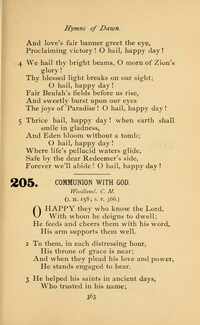 Hymns of Dawn.
And love's fair banner greet the eye,
Proclaiming victory! O hail, happy day!
4 We hail thy bright beams, O morn of Zion's
glory!
Thy blessed light breaks on our sight;
O hail, happy day!
Fair Beulah's fields before us rise,
And sweetly burst upon our eyes
The joys of Paradise! O hail, happy day!
5 Thrice hail, happy day! when earth shall
smile in gladness,
And Eden bloom without a tomb;
O hail, happy day!
Where life's pellucid waters glide,
Safe by the dear Redeemer's side,
Forever we'll abide! O hail, happy day!
205. COMMUNION WITH GOD.
Woodland. C. M.
O HAPPY they who know the Lord,
With whom he deigns to dwell;
He feeds and cheers them with his word,
His arm supports them well.
2 To them, in each distressing hour,
His throne of grace is near;
And when they plead his love and power,
He stands engaged to hear.
3 He helped his saints in ancient days,
Who trusted in his name;
363